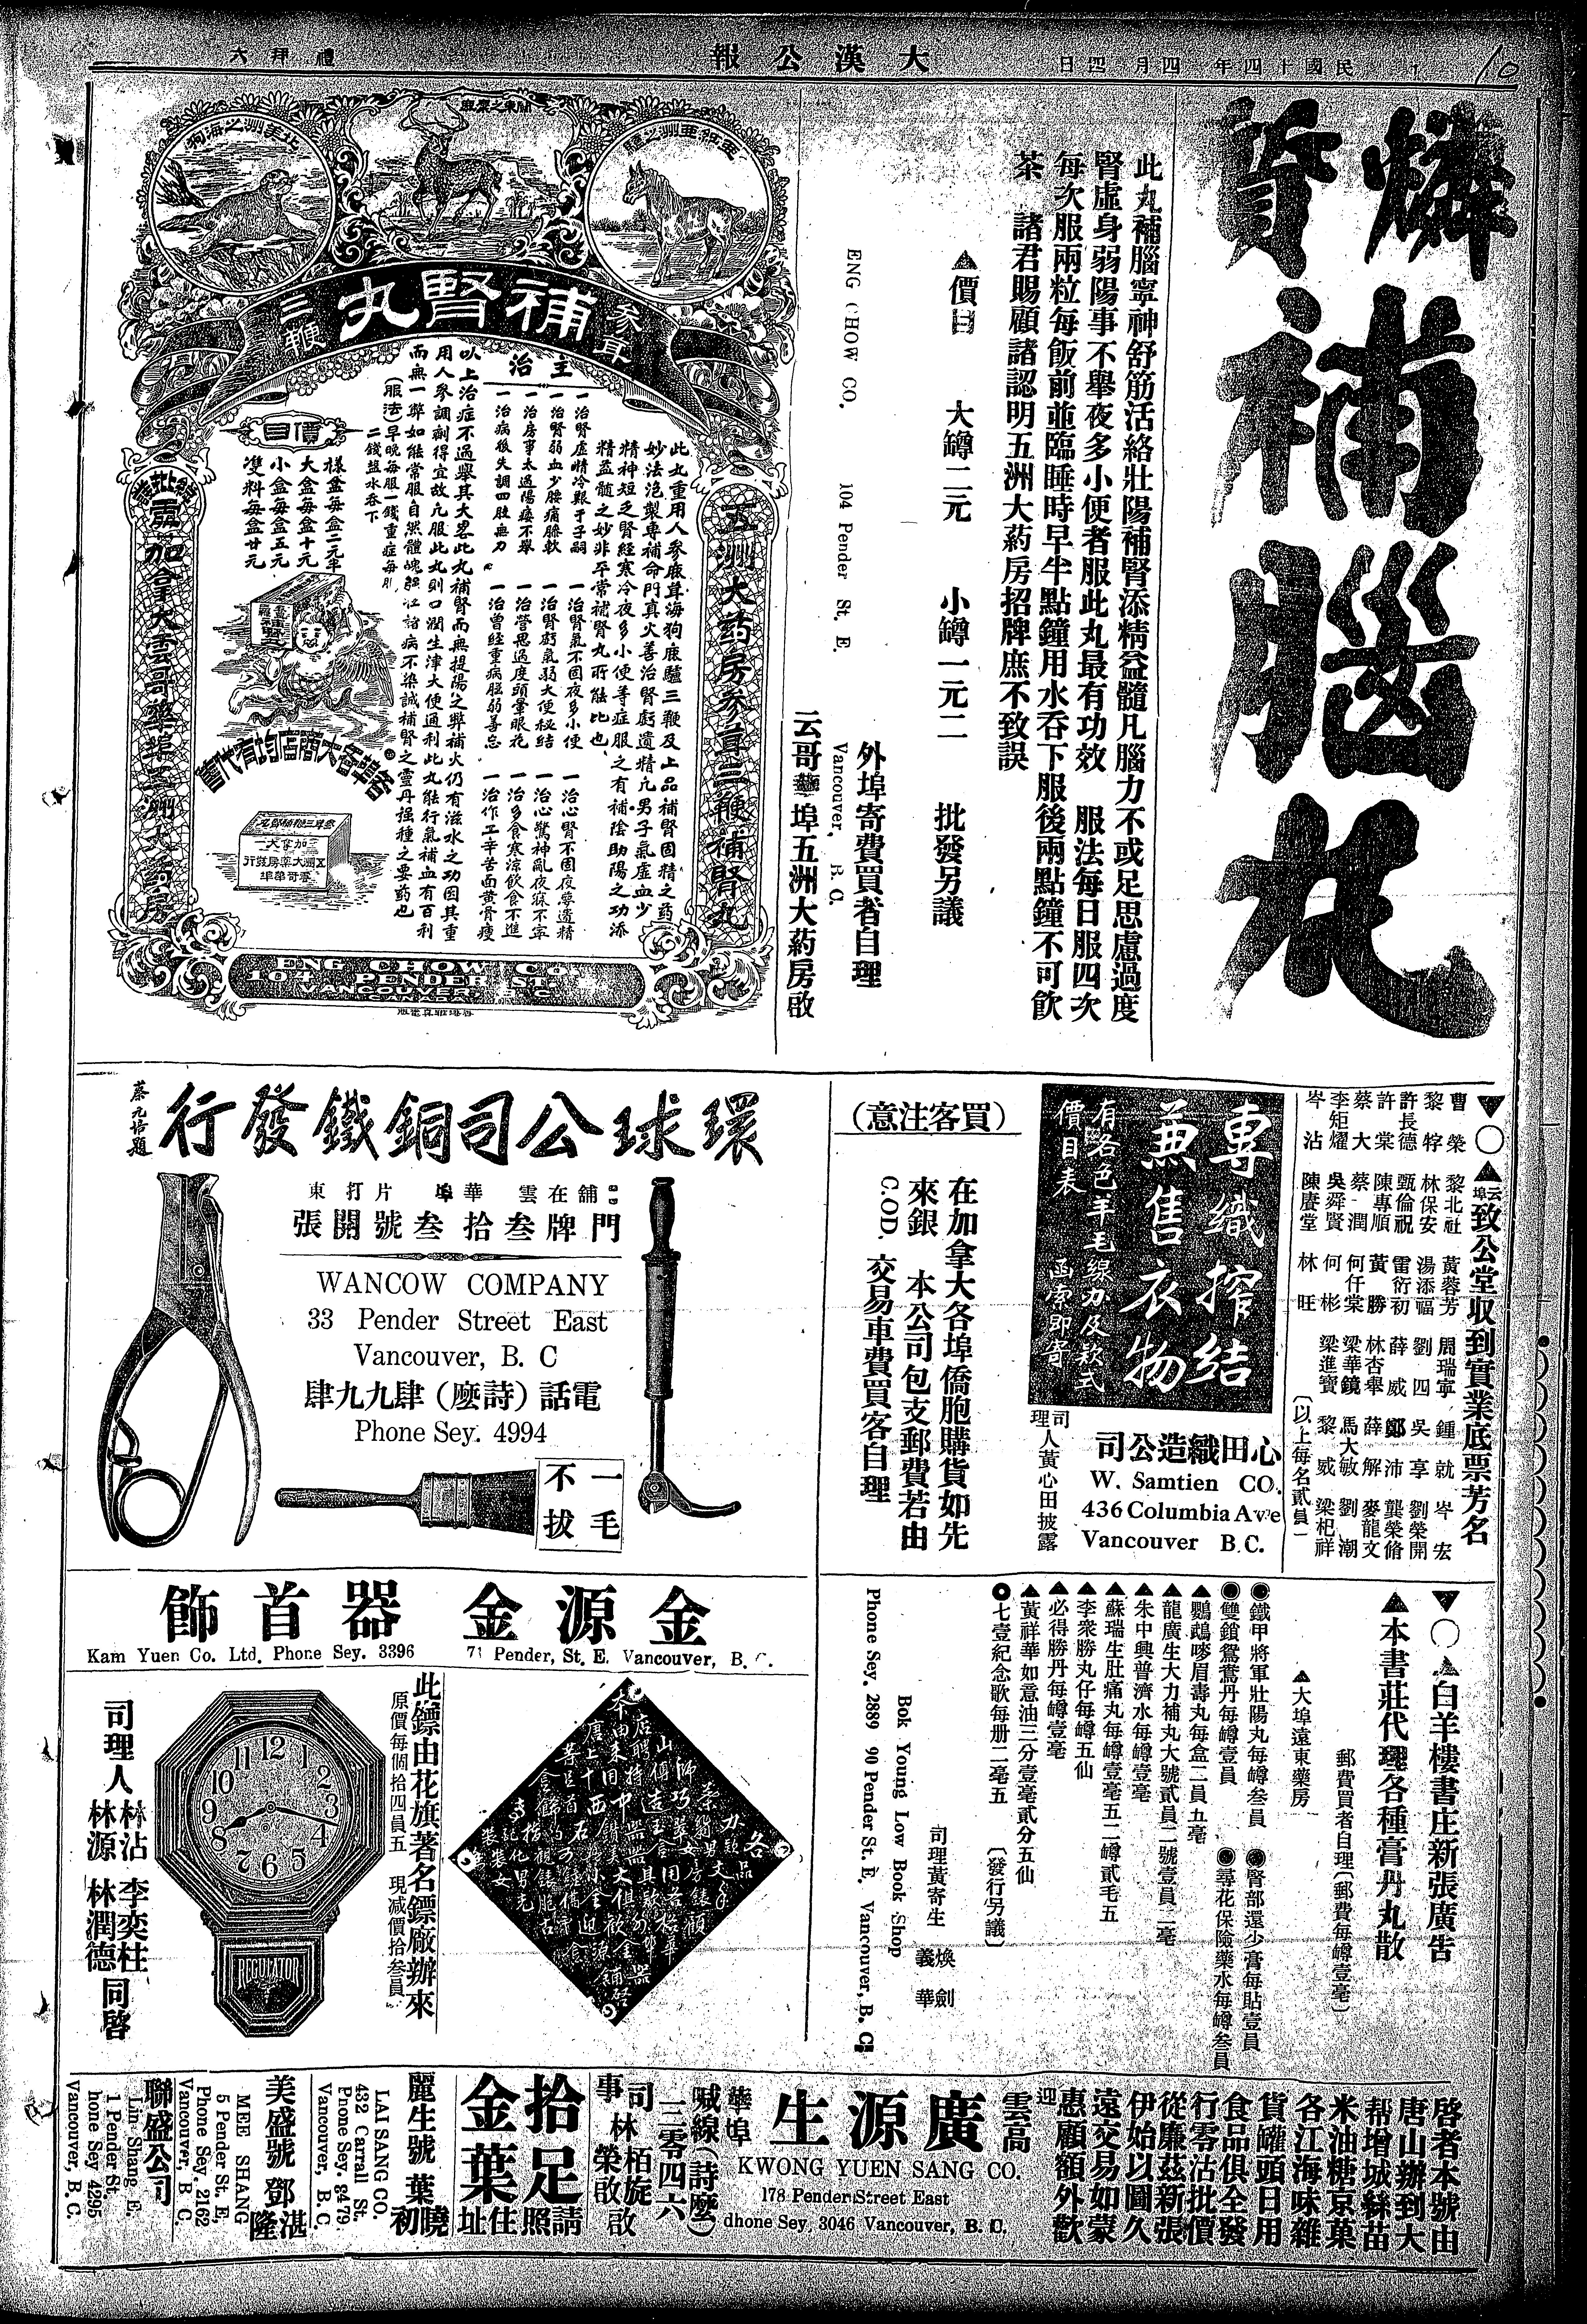 民國十四年四月四日
大漢公報
禮拜六
燐質補腦丸
此丸補腦寧神舒筋活絡壯陽補腎添精益髓凡腦力不或足思慮過度
腎虛身弱陽事不舉夜多小便者服此丸最有功效　服法每日服四次
每次服兩粒每飯前並臨睡時早半點鐘用水吞下服後兩點鐘不可飲
茶　諸君賜顧請認明五洲大葯房招牌庶不致誤
▲價目　大罇二元　小罇一元二　批發另議
外埠寄費買者自理
ENG CHOW CO. 104 Pender St. E. Vancouver, B. C.
云哥華埠五洲大葯房啟
北美洲之海狗
關東之梁鹿
亞細亞洲之驢
參茸
補腎丸
三鞭
五洲大葯房參茸三鞭補腎丸
主治
此丸重用人參鹿茸海狗鹿驢三鞭及上品補腎固精之葯
妙法泡製專補命門真火善治腎虧遺精凡男子氣虛血少
精神短乏腎經寒冷夜多小便等症服之有補陰助陽之功添
精益髓之妙非平常補腎丸所能比也
一治腎虛精冷艱于子嗣
一治腎弱血少腰痛膝軟
一治房事太過陽痿不舉
一治病後失調四肢無力
一治腎氣不固夜多小便
一治腎虧氣弱大便秘結
一治營思過度頭暈眼花
一治曾經重病腦弱善忘
一治心腎不固夜夢遺精
一治心驚神亂夜寐不寧
一治多食寒涼飲食不進
一治作工辛苦面黃骨瘦
以上治症不過舉其大畧此丸補腎而無提陽之弊補火仍有滋水之功因其重
用人參調劑得宜故凡服此丸則口潤生津大便通利此丸能行氣補血有百利
而無一弊如能常服自然體魄強壯諸病不染誠補腎之靈丹强種之要葯也
(服法)早晚每服一錢重症每服
二錢鹽水吞下
價目
樣盒每盒二元半
大盒每盒十元
小盒每盒五元
雙料每盒廿元
各埠各大商店均有代售
加拿大雲哥華埠五洲大葯房
ENG CHOW Co.
104 PENDER ST.
VANCOUVER B.C.
CANADA
▼○▲云埠致公堂收到實業底票芳名
曹榮　黎北社　黃蓉芳　周瑞寧　鍾就　岑宏
黎㹃　林保安　湯添福　劉四　吳享　劉榮開
許長德　甄倫祝　雷衍初　薛威　鄭沛　龔榮脩
許棠　陳專順　黃勝　林杏舉　薛解　麥龍文
蔡大　蔡潤　何仟棠　梁華鏡　馬大敏　劉潮
李矩燿　吳舜賢　何彬　梁進寶　黎威　梁杞祥
岑沾　陳賡堂　林旺
(以上每名貳員)
專織搾結
兼售衣物
有各色羊毛線办及款式
價目表　函索即寄
心田織造公司
W. Samtien CO.
436 Columbia Ave
Vancouver B.C.
司理人黃心田披露
(買客注意)
在加拿大各埠僑胞購貨如先
來銀　本公司包支郵費若由
C.O.D. 交易車費買客自理
環球公司銅鐵發行
蔡元培題
舖在雲　華埠　片打東
門牌叁拾叁號開張
WANCOW COMPANY
33 Pender Street East
Vancouver, B. C
電話(詩麽)肆九九肆
Phone Sey. 4994
一毛
不拔
▼○▲白羊樓書庄新張廣告
▲本書莊代理各種膏丹丸散
郵費買者自理(郵費每罇壹毫)
▲大埠遠東藥房
●鐵甲將軍壯陽丸每罇叁員　●腎部還少膏每貼壹員
●雙鎖鴛鴦丹每罇壹員　●尋花保險藥水每罇叁員
▲鸚鵡嘜眉壽丸每盒二員五毫
▲龍廣生大力補丸大號貳員二號壹員二毫
▲朱中興普濟水每罇壹毫
▲蘇瑞生肚痛丸每罇壹毫五二罇貳毛五
▲李衆勝丸仔每罇五仙
▲必得勝丹每罇壹毫
▲黃祥華如意油三分壹毫貳分五仙
●七壹紀念歌每册二毫五　(發行另議)
司理黃寄生　煥劍　義華
Bok Young Low Book Shop
Phone Sey. 2889 90 Pender St. E. Vancouver, B. C.
金源金器首飾
Kam Yuen Co. Ltd. Phone Sey. 3396 71 Pender, St. E. Vancouver, B. C.
此鏢由花旗著名鏢廠辦來
原價每個拾四員五　現減價拾叁員
REGULATOR
司理人　林沾　林源　李奕柱　林潤德　同啓
啓者本號由
唐山辦到大
帮增城絲苗
米油糖京菓
各江海味雜
貨罐頭日用
食品俱全發
行零沽批價
從廉茲新張
伊始以圖久
遠交易如蒙
惠顧額外歡
迎
雲高華埠
廣源生
KWONG YUEN SANG CO.
178 Pender Street East
Phone Sey. 3046 Vancouver, B. C.
喊線(詩麽)
三零四六
司事　林栢旋　林榮　啟
拾足金葉
請照住址
麗生號　葉曉初
LAI SANG CO.
432 Carrall St.
Phone Sey. 8479
Vancouver, B. C.
美盛號　鄧湛隆
MEE SHANG
5 Pender St. E,
Phone Sey. 2162
Vancouver, B. C
聯盛公司
Lin Shang E.
1 Pender St.
Phone Sey 4295
Vancouver, B. C.